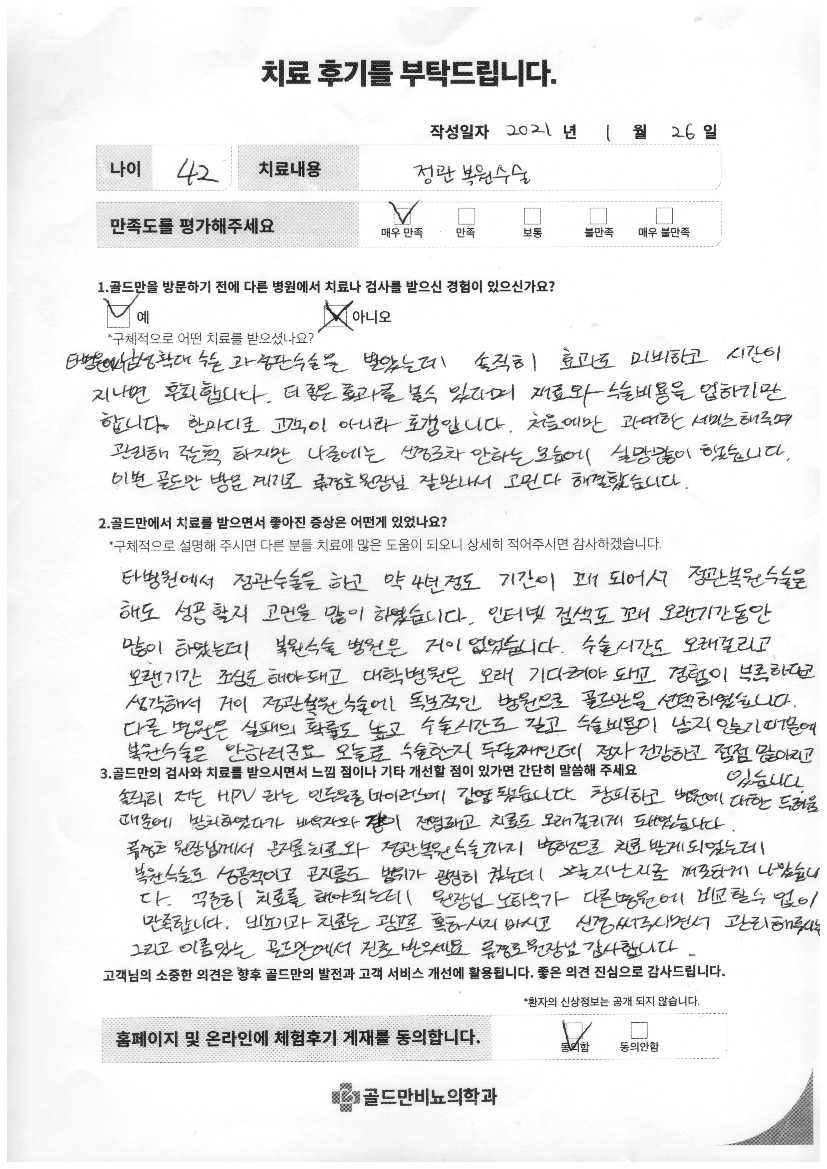 치료 후기를 부탁드립니다.
작성일자 2021 년 1 월 26 일
나이 42 치료내용 정관복원수술
만족도를 평가해주세요 매우 만족 만족 보통 불만족 매우 불만족
1.골드만을 방문하기 전에 다른 병원에서 치료나 검사를 받으신 경험이 있으신가요?
예 아니오
*구체적으로 어떤 치료를 받으셨나요?
타병원에서 남성확대 수술 과 정관수술을 받았는데 솔직히 효과도 미비하고 시간이
지나면 후회합니다. 더 좋은 효과를 볼수 있다며 재료와 수술비용을 업하기만
합니다. 한마디로 고객이 아니라 호갱입니다. 처음에만 과대한 서비스해주며
관리해 줄듯 하지만 나중에는 신경조차 안하는 모습에 실망많이 했습니다.
이번 골드만 방문 계기로 류경호원장님 잘만나서 고민다 해결했습니다.
2.골드만에서 치료를 받으면서 좋아진 증상은 어떤게 있었나요?
*구체적으로 설명해 주시면 다른 분들 치료에 많은 도움이 되오니 상세히 적어주시면 감사하겠습니다.
타병원에서 정관수술을 하고 약 4년정도 기간이 꽤 되어서 정관복원수술은
해도 성공할지 고민을 많이 하였습니다. 인터넷 검색도 꽤 오랜기간동안
많이 하였는데 복원수술 병원은 거이 없었습니다. 수술시간도 오래걸리고
오랜기간 조심도 해야돼고 대학병원은 오래 기다려야 돼고 경험이 부족하다고
생각해서 거이 정관복원 수술에 독보적인 병원으로 골드만을 선택하였습니다.
다른 병원은 실패의 확률도 높고 수술시간도 길고 수술비용이 남지 않는기 때문에
복원수술은 안하려군요 오늘로 수술한지 두달째인데 정자 건강하고 점점 많아지고
있습니다.
3.골드만의 검사와 치료를 받으시면서 느낌 점이나 기타 개선할 점이 있가면 간단히 말씀해 주세요
솔직히 저는 HPV 라는 인두유종바이러스에 감염 됐습니다. 창피하고 병원에 대한 두려움
때문에 방치하였다가 배우자와 같이 전염돼고 치료도 오래걸리게 돼었습니다.
류경호 원장님께서 곤지름치료와 정관복원수술까지 병행으로 치료 받게되었는데
복원수술도 성공적이고 곤지름도 범위가 굉장히 컸는데 오늘지난지로 깨끗하게 나았습니
다. 꾸준히 치료를 해야되는데 원장님 노하우가 다른병원에 비교할수 없이
만족합니다. 비뇨기과 치료는 광고로 혹하시지 마시고 신경써주시면서 관리해주시는
그리고 이름있는 골드만에서 진료 받으세요 류경호원장님 감사합니다
고객님의 소중한 의견은 향후 골드만의 발전과 고객 서비스 개선에 활용됩니다. 좋은 의견 진심으로 감사드립니다.
*환자의 신상정보는 공개 되지 않습니다.
홈페이지 및 온라인에 체험후기 게재를 동의합니다. 동의함 동의안함
골드만비뇨의학과